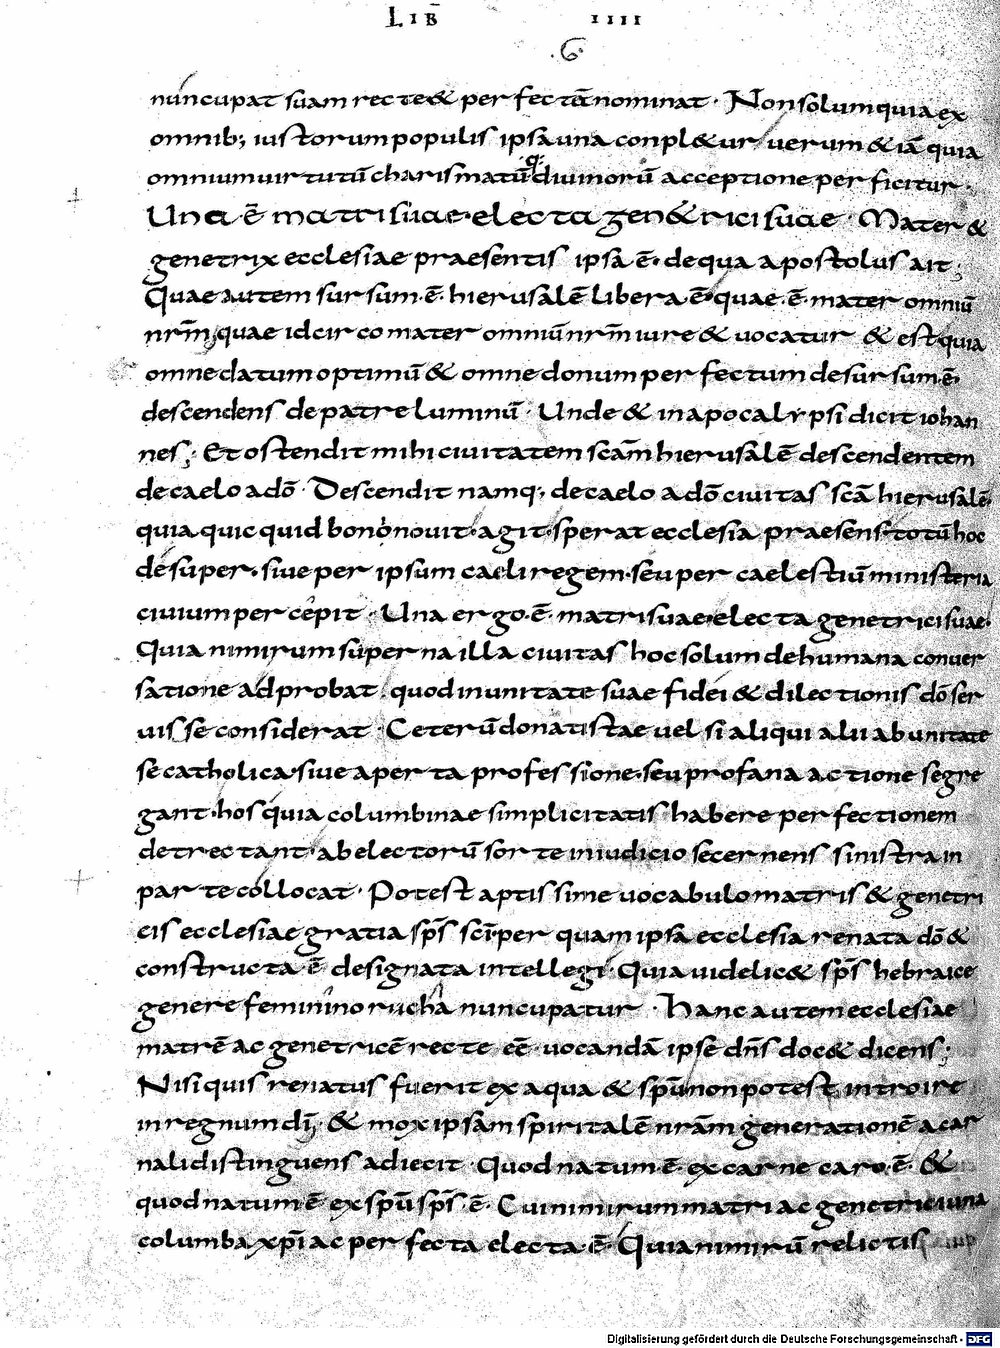 LIB̄ IIII
.G.
nuncupat suam recte & perfectā nominat · Non solum quia ex
omnib; iustorum populis ipsa una conpl&ur uerum & iā quia
omnium uirtutū charismatūq; diuinorū acceptione perficitur ·
Una ē matri suae electa gen&rici suae · Mater &
genetrix ecclesiae praesentis ipsa ē · de qua apostolus ait ;
Quae autem sursum · ē · hierusalē libera · ē · quae · ē · mater omniū
nr̄m, quae idcirco mater omniū nr̄m iure & uocatur & est quia
omne datum optimū & omne donum perfectum desursum ē
descendens de patre luminū · Unde & in apocalypsi dicit iohan
nes ; Et ostendit mihi ciuitatem scām hierusalē descendentem
de caelo a dō · Descendit namq; de caelo a dō ciuitas scā hierusalē
quia quicquid boni nouit · agit · sperat ecclesia praesens · totū hoc
desuper · siue per ipsum caeli regem · seu per caelestiū ministeria
ciuium percepit · Una ergo · ē · matri suae electa genetrici suae ·
Quia nimirum superna illa ciuitas hoc solum de humana conuer
satione adprobat · quod in unitate suae fidei & dilectionis dō ser
uisse considerat · Ceterū donatistae uel si aliqui alii ab unitate
se catholica · siue aperta professione · seu profana actione segre
gant · hos quia columbinae simplicitatis habere perfectionem
detrectant · ab electorū sorte in iudicio secernens sinistra in
parte collocat · Potest aptissime uocabulo matris & genetri
cis ecclesiae gratia sp̄s sc̄i per quam ipsa ecclesia renata dō &
constructa · ē · designata intellegi · Quia uidelic& sp̄s hebraice
genere feminino rucha nuncupatur · Hanc autem ecclesiae
matrē ac genetricē recte eē uocandā ipse dn̄s doc& dicens ;
Nisi quis renatus fuerit ex aqua & spū non potest introire
in regnum dī, & mox ipsam spiritalē nr̄am generationē a car
nali distinguens adiecit · Quod natum · ē · ex carne caro · ē · &
quod natum · ē · ex spū sp̄s · ē · Cui nimirum matri ac genetrici una
columba xp̄i ac perfecta electa · ē · Quia nimirū relictis
Digitalisierung gefördert durch die Deutsche Forschungsgemeinschaft - DFG